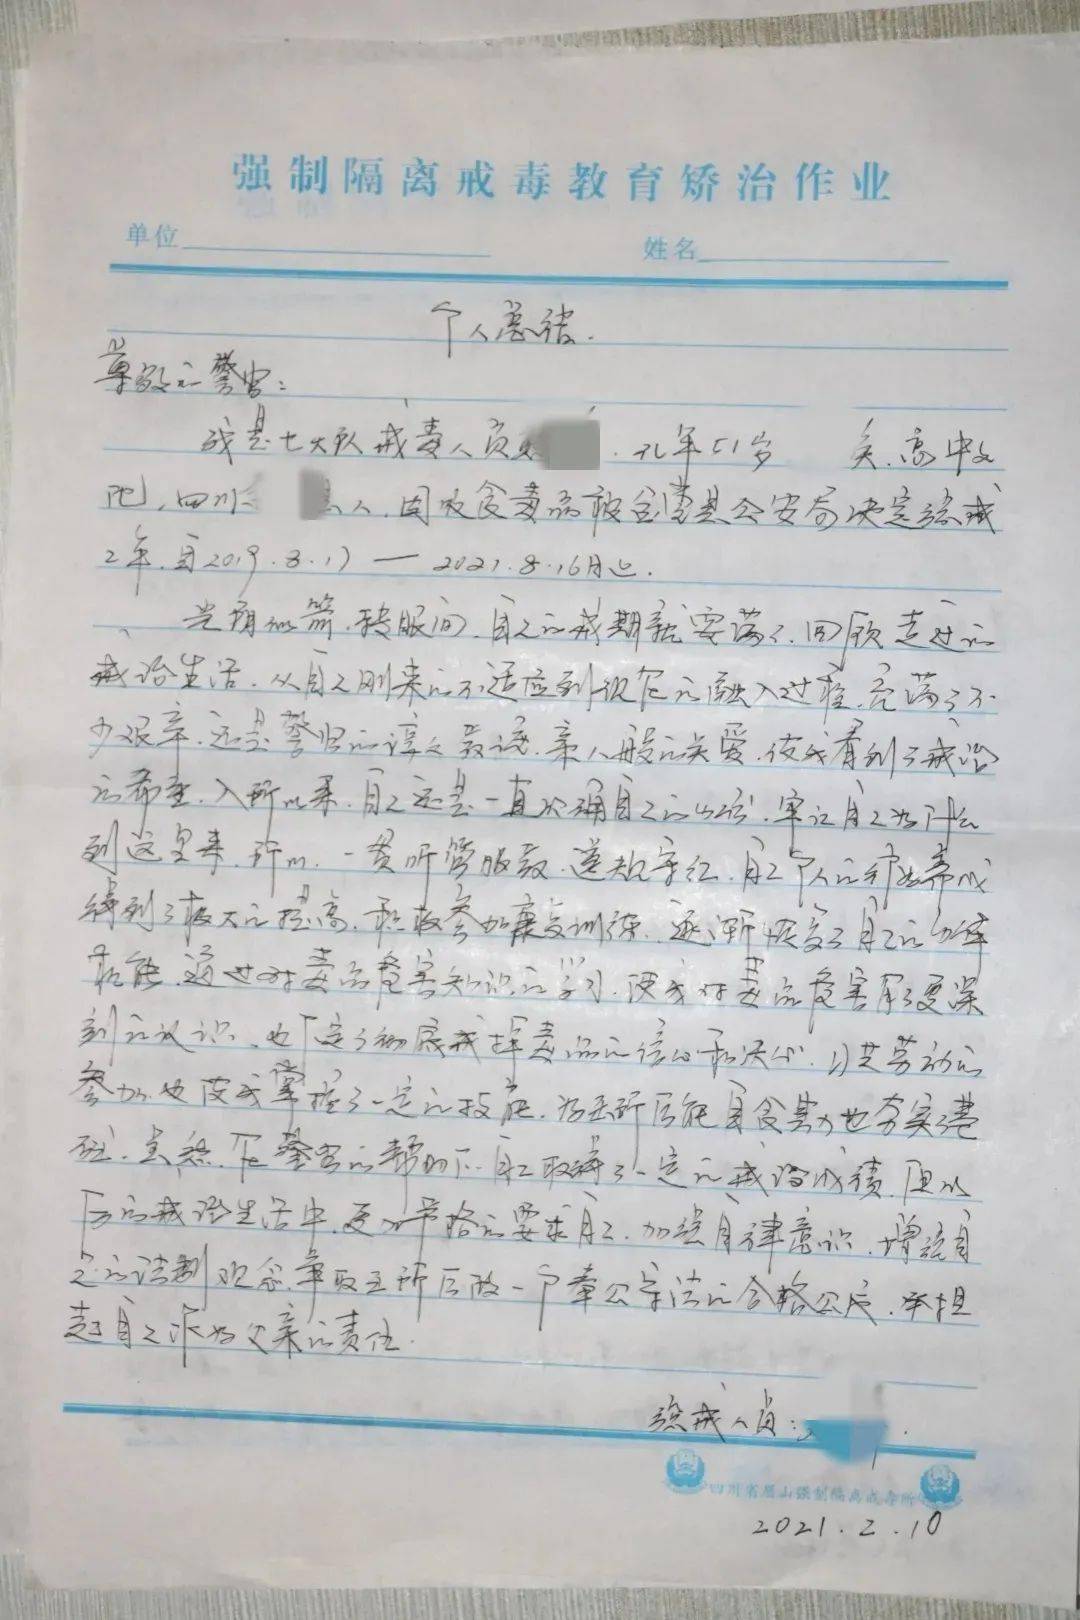 强制隔离戒毒教育矫治作业
单位 姓名
个人总结.
尊敬的警官：
我是七大队戒毒人员 ,现年51岁 关.高中文
化,四川 人,因吸食毒品被金堂县公安局决定强戒
2年,自2019.8.17—2021.8.16日止.
光阴似箭,转眼间,自己的戒期就要满了,回顾走过的
戒治生活,从自己刚来的不适应到现在的融入过程,充满了不
少艰辛,还是警官的谆谆教诲,亲人般的关爱,使我看到了戒治
的希望,入所以来,自己还是一直明确自己的身份,牢记自己为什么
到这里来,所以,一贯听管服教,遵规守纪,自己个人的行为养成
得到了极大的提高,积极参加康复训练,逐渐恢复了自己的身体
机能,通过对毒品危害知识的学习,使我对毒品危害有了更深
刻的认识,也下定了彻底戒掉毒品的信心和决心,习艺劳动的
参加,也使我掌握了一定的技能,为出所后能自食其力也夯实了基
础,虽然,在警官的帮助下,自己取得了一定的戒治成绩,但以
后的戒治生活中,更加严格的要求自己,加强自律意识,增强自
己的法制观念,争取出所后做一个奉公守法的合格公民,承担
起自己作为父亲的责任.
强戒人员：
四川省眉山强制隔离戒毒所
2021.2.10